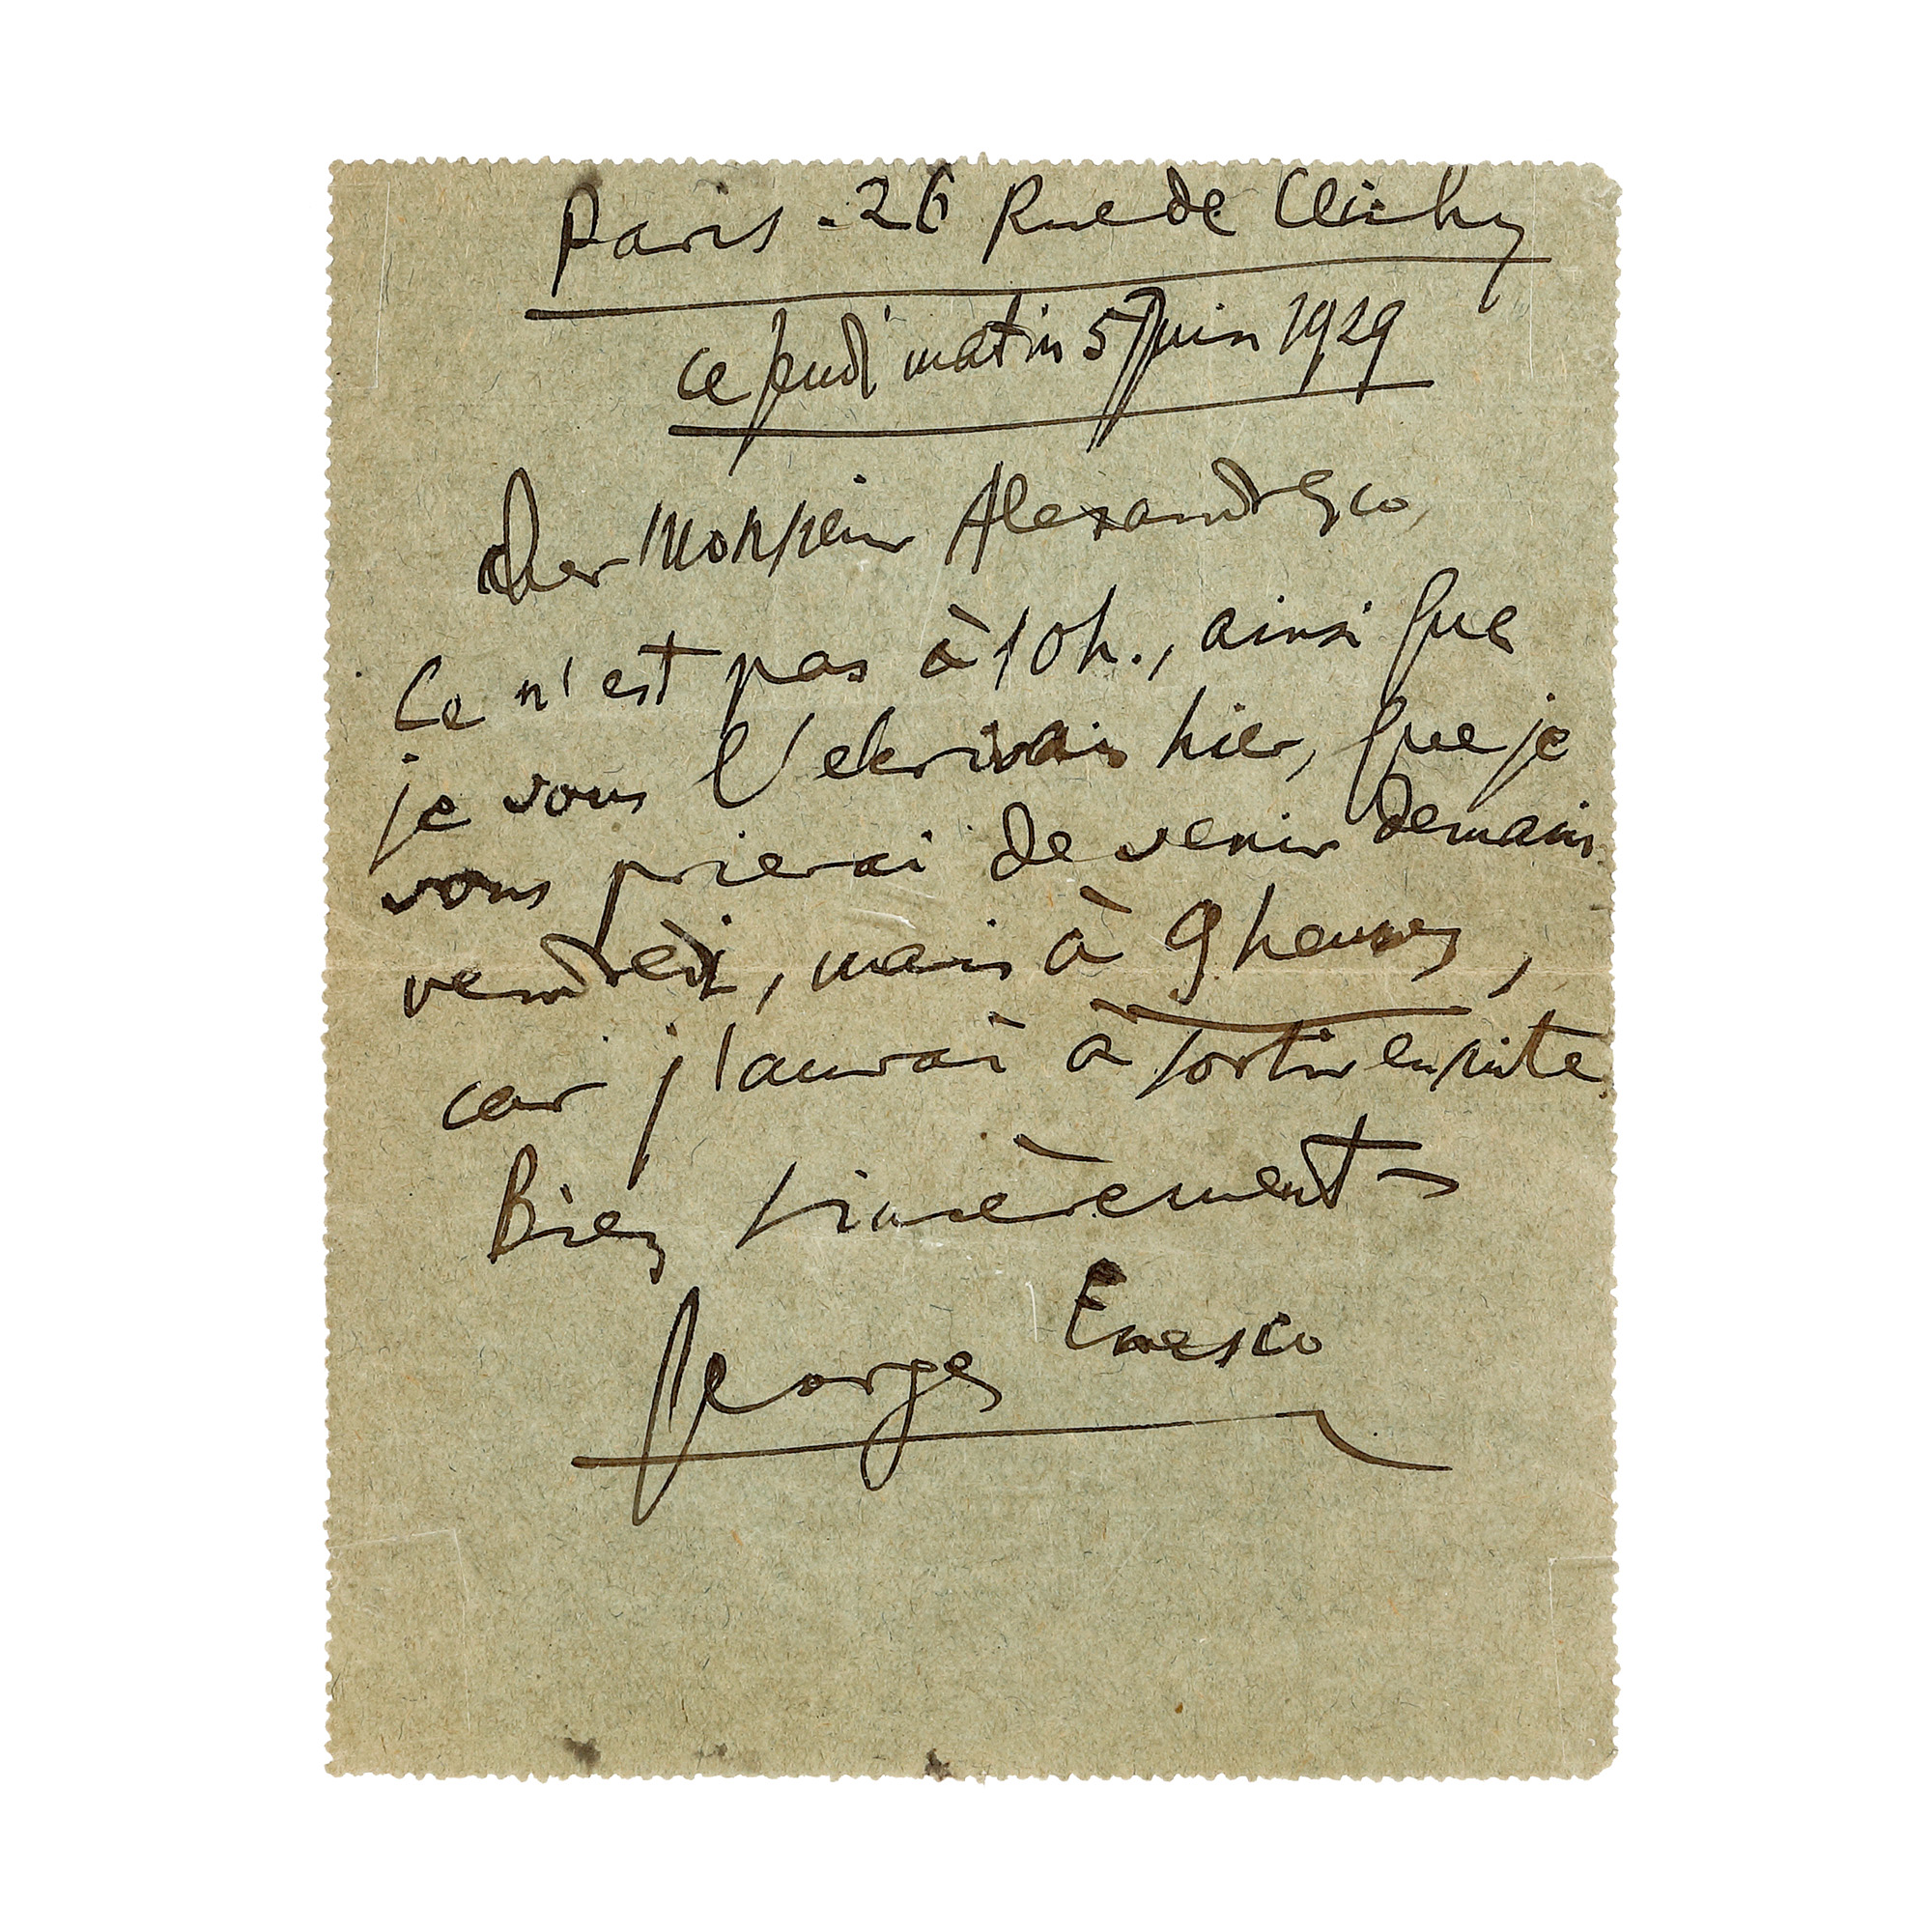 Paris - 26 Rue de Clichy
ce jeudi matin 5 Juin 1929
Cher Monsieur Alexandresco,
Ce n'est pas à 10h., ainsi que
je vous l'ecrivais hier, que je
vous prierai de venir demain
vendredi, mais à 9 heures,
car j'aurai à sortir ensuite.
Bien sincèrement
Georges Enesco